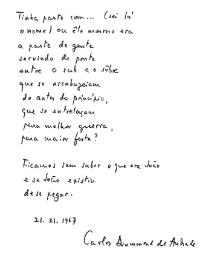 Tinha parte com... (sei lá
o nome) ou êle mesmo era
a parte de gente
servindo de ponte
entre o sub e o sôbre
que se arcabuzeiam
de antes do princípio,
que se entrelaçam
para melhor guerra,
para maior festa?
Ficamos sem saber o que era João
e se João existiu
de se pegar.
21.XI.1967
Carlos Drummond de Andrade